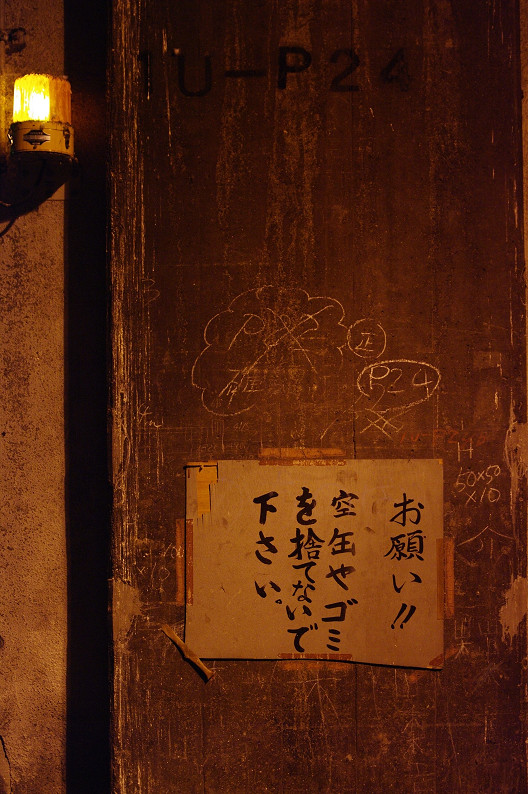 1U-P24
正
P24
H
50×50
×10
お願い!!
空缶やゴミ
を捨てないで
下さい。